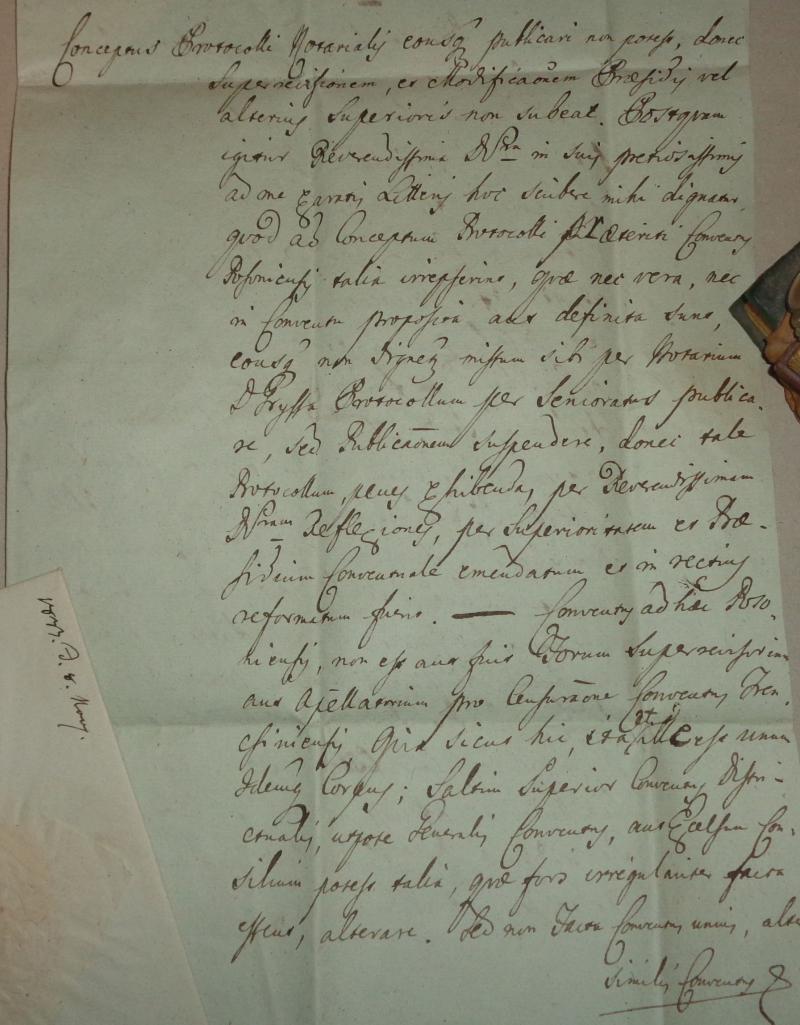 Conceptus Protocolli Notarialis cousq publicari non potest, donec
Superrevisionem, et Modificaōnem Præsidis vel
alterius Superioris non subeat. Postquam
igitur Reverendissima D Vra in suis pretiosissimis
ad me exaratis Litteris hoc scribere mihi dignatur,
quod ad Conceptum Protocolli præteriti Conventus
Posoniensis talia irrepserint, quæ nec vera, nec
in Conventu proposita aut definita sunt,
cousq non dignetr missum sibi per Notarium
D Gryssa Protocollum per Senioratus publica-
re, sed Publicaōnem suspendere, donec tale
Protocollum, penes exhibendas per Reverendissimam
D Vram Reflexiones, per Superioritatem et Præ-
sidium Conventuale emendatum et in rectius
reformatum fuerit. — Conventus adhæc Poso-
niensis, non est aut fuit Forum Superrevisorium
aut Apellatorium pro Censuraōne Conventus Tren-
chiniensis, Quia sicut hic, ita et ille est unum
Idemq Corpus; Saltim Superior Conventus Distri-
ctualis, utpote Generalis Conventus, aut Excelsum Con-
silium potest talia, quæ fors irregulariter facta
essent, alterare. Sed non Facta Conventus unius, alte
similis Conventus